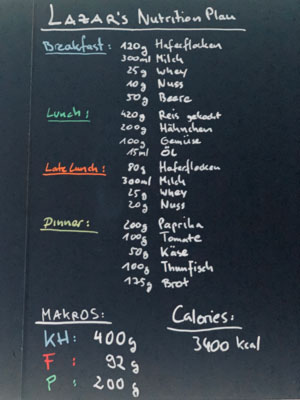 LAZAR's Nutrition Plan
Breakfast: 120g Haferflocken
300ml Milch
25g Whey
10g Nuss
50g Beere
Lunch: 420g Reis gekocht
200g Hähnchen
100g Gemüse
15ml Öl
Late Lunch: 80g Haferflocken
300ml Milch
25g Whey
20g Nuss
Dinner: 200g Paprika
100g Tomate
50g Käse
100g Thunfisch
175g Brot
MAKROS: Calories:
KH: 400g 3400 kcal
F: 92g
P: 200g